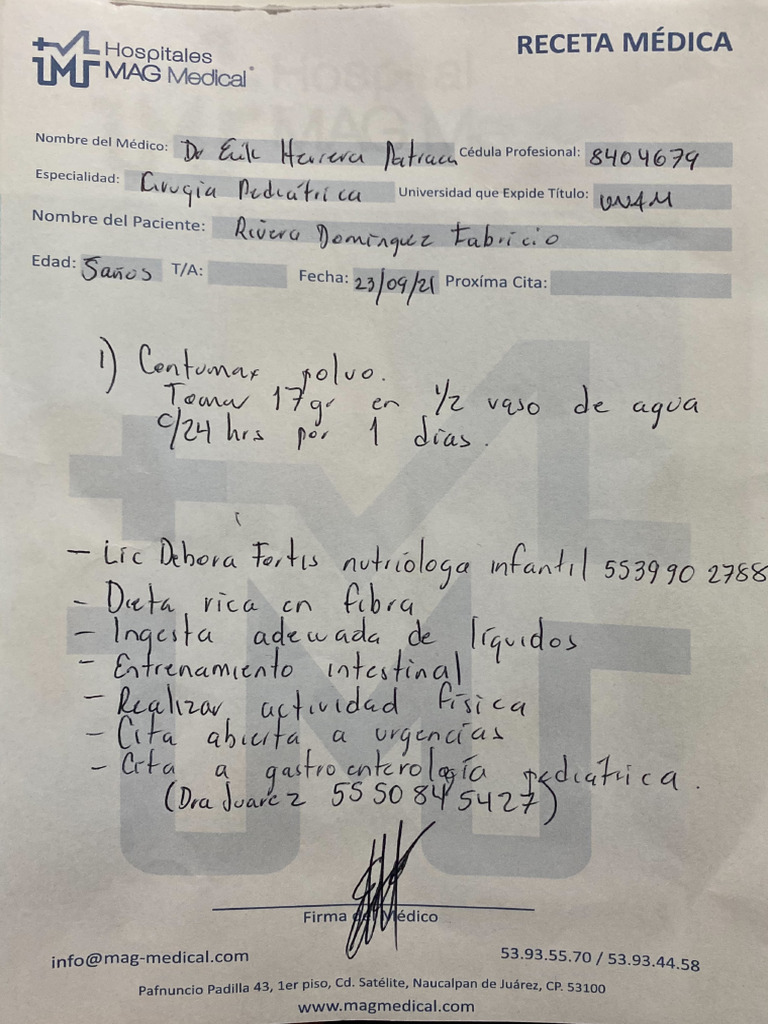 Hospitales
MAG Medical
RECETA MÉDICA
Nombre del Médico: Dr Erik Herrera Cédula Profesional: 8404679
Especialidad: Cirugia Pediátrica Universidad que Expide Título: UNAM
Nombre del Paciente: Rivera Dominguez Fabricio
Edad: 5años T/A: Fecha: 23/09/21 Proxíma Cita:
1) Contumax polvo.
Tomar 17gr en 1/2 vaso de agua
c/24 hrs por 1 días.
- Lic Debora Fortis nutrióloga infantil 553990 2788
- Dieta rica en fibra
- Ingesta adecuada de líquidos
- Entrenamiento intestinal
- Realizar actividad física
- Cita abierta a urgencias
- Cita a gastroenterología pediátrica.
(Dra Juarez 55 5084 5427)
Firma del Médico
info@mag-medical.com 53.93.55.70 / 53.93.44.58
Pafnuncio Padilla 43, 1er piso, Cd. Satélite, Naucalpan de Juárez, CP. 53100
www.magmedical.com